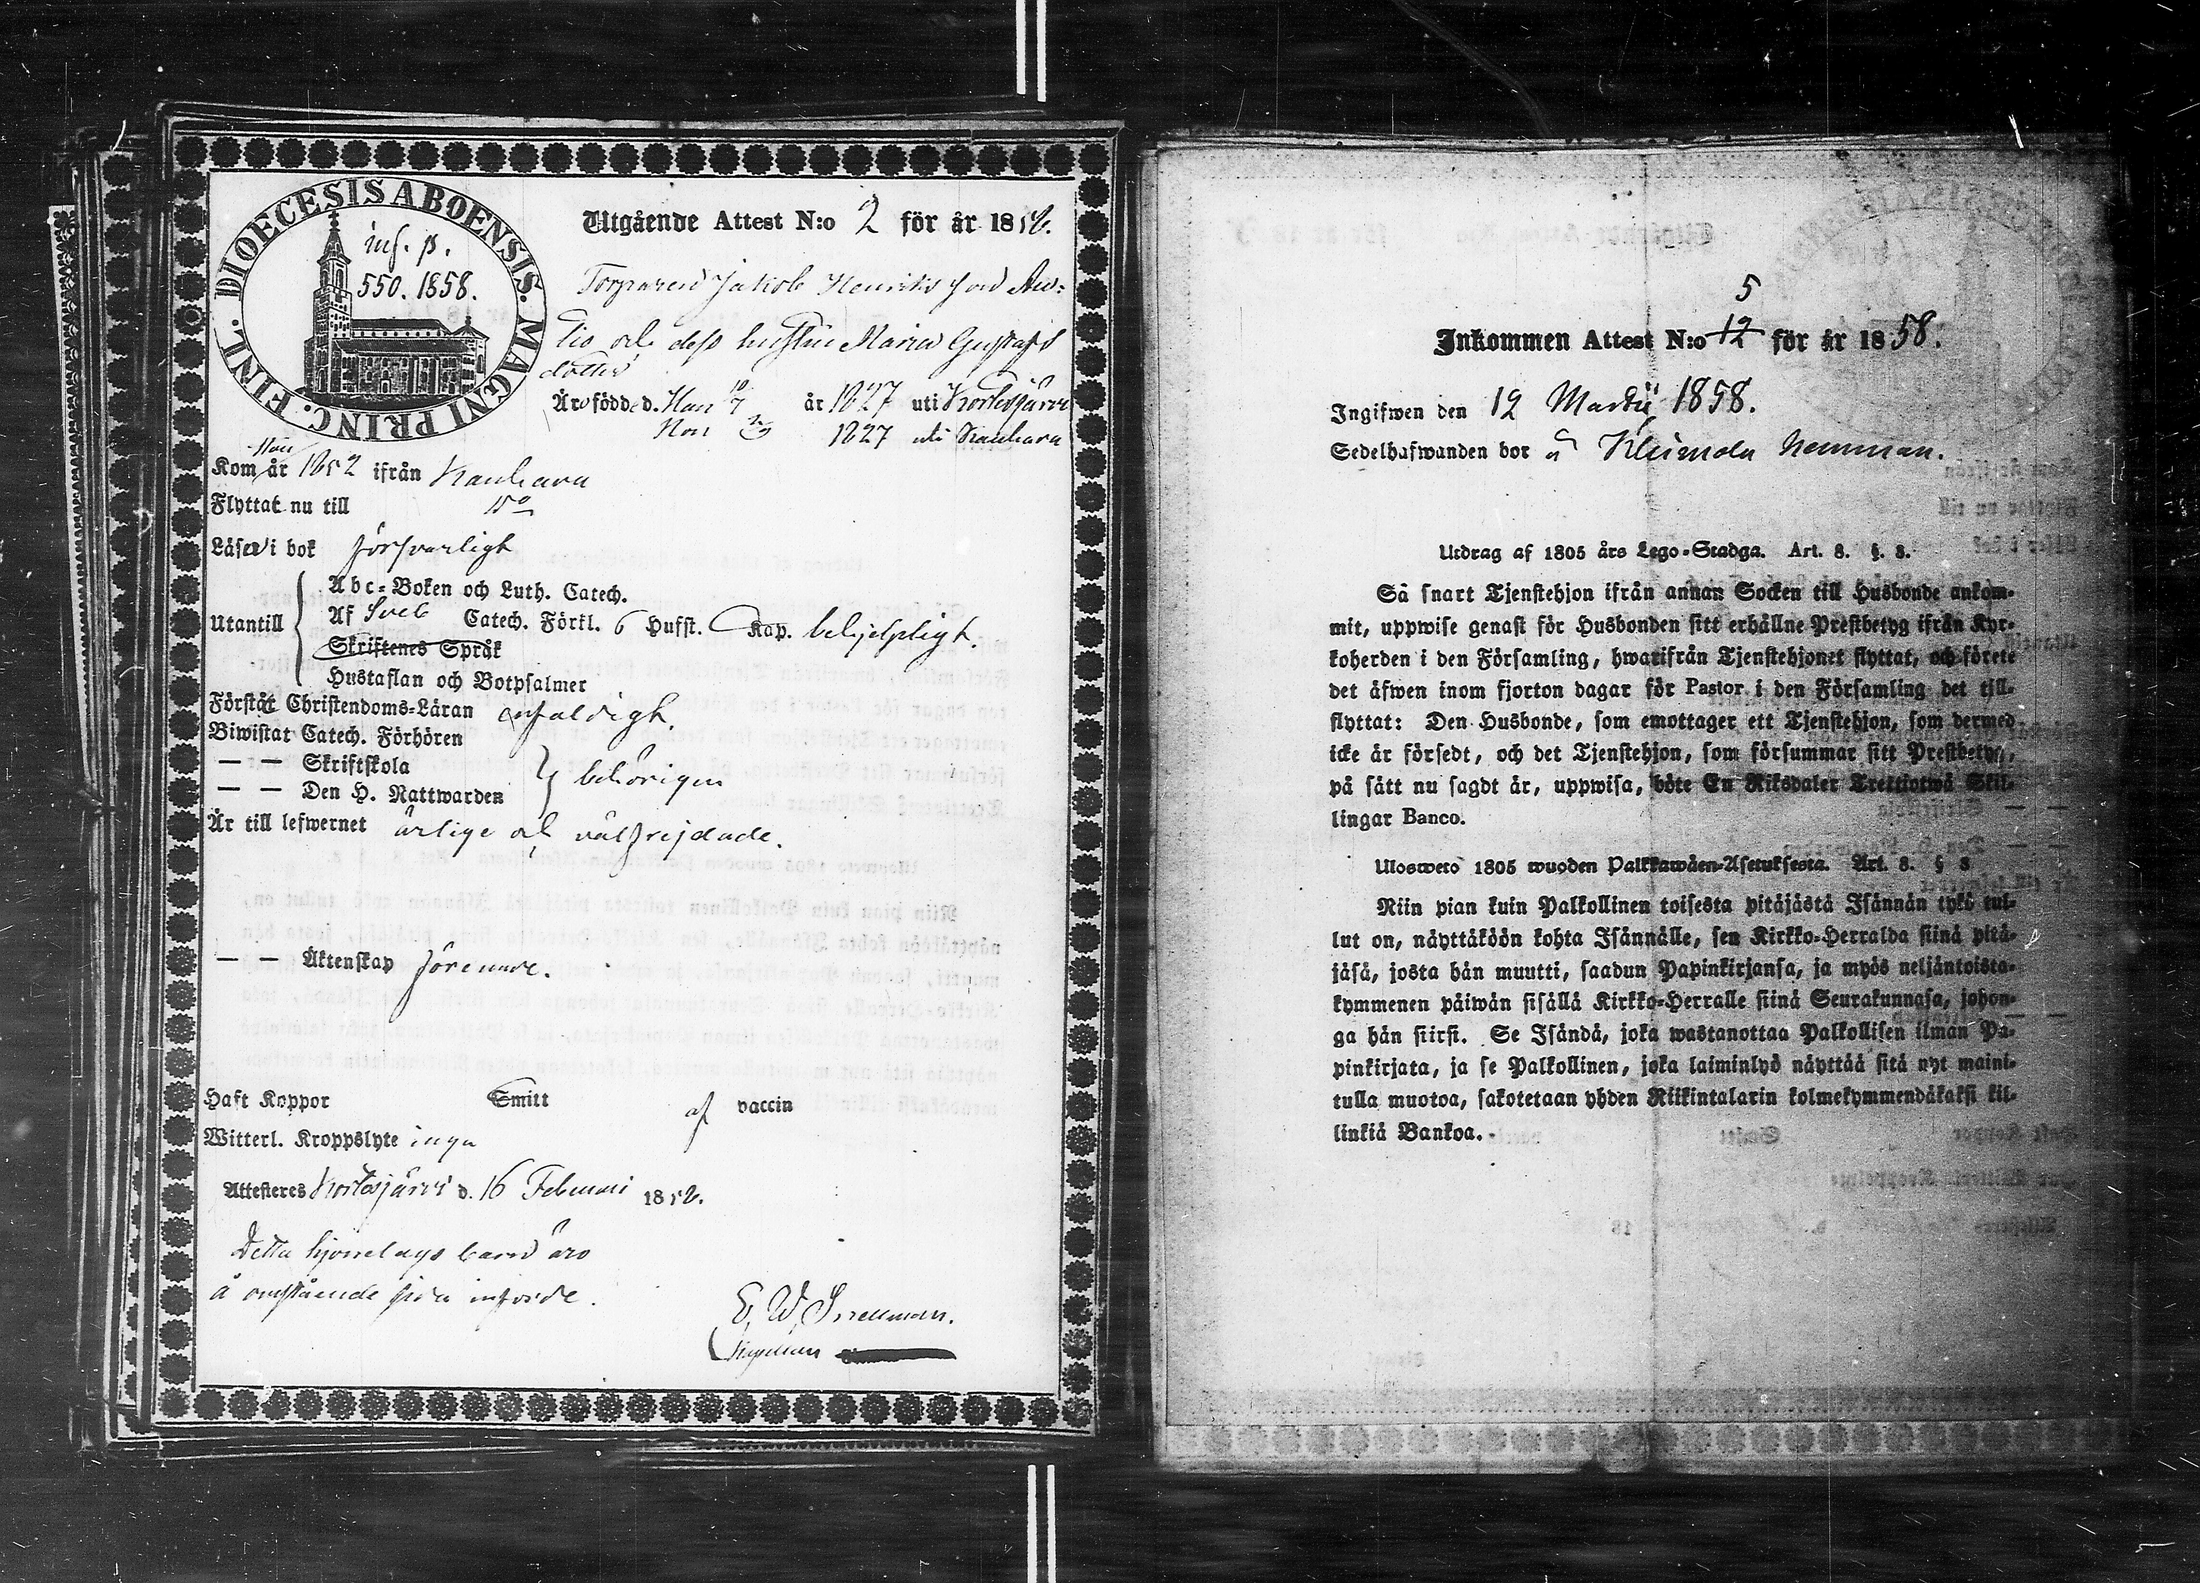 DIOECESIS ABOENSIS. MAGNI PRINC. FINL.
inf. p.
550. 1858.
Utgående Attest N:o 2 för år 1858.
Torparen Jakob Henriksson
och dess hustru Maria Gustafs
dotter
Äro födde d. Han 10/7 år 1827 uti Kortesjärvi
Hon 1827 uti Kauhava
Hon
Kom år 1852 ifrån Kauhava
Flyttat nu till
Läser i bok försvarligt
Utantill
Abc-Boken och Luth. Catech.
Af Sveb Catech. Förkl. 6 Hufst. Kap. behjelpligt.
Skriftenes Språk
Hustaflan och Botpsalmer
Förstår Christendoms-Läran enfaldigt.
Biwistat Catech. Förhören
— — Skriftskola
— — Den H. Nattwarden behörigen
Är till lefwernet ärlige och välfrejdade.
— — Äktenskap förenade.
Haft Koppor Smitt af vaccin
Witterl. Kroppslyte inga
Attesteres Kortesjärvi d. 16 Februari 1858.
Detta hjonelags barn äro
å omstående sida införde.
E. W. Snellman.
Kapellan
5
Inkommen Attest N:o 12 för år 1858.
Ingifwen den 12 Martii 1858.
Sedelhafwanden bor å hemman.
Utdrag af 1805 års Lego-Stadga. Art. 8. §. 8.
Så snart Tjenstehjon ifrån annan Socken till Husbonde ankom-
mit, uppwise genast för Husbonden sitt erhållne Prestbetyg ifrån Kyr-
koherden i den Församling, hwarifrån Tjenstehjonet flyttat, och förete
det äfwen inom fjorton dagar för Pastor i den Församling det till-
flyttat: Den Husbonde, som emottager ett Tjenstehjon, som dermed
icke är försedt, och det Tjenstehjon, som försummar sitt Prestbetyg,
på sätt nu sagdt är, uppwisa, böte En Riksdaler Trettiotwå Skil-
lingar Banco.
Ulosweto 1805 wuoden Palkkawäen-Asetuksesta. Art. 8. § 8
Niin pian kuin Palkollinen toisesta pitäjästä Isännän tykö tul-
lut on, näyttäköön kohta Isännälle, sen Kirkko-Herralda siinä pitä-
jäsä, josta hän muutti, saadun Papinkirjansa, ja myös neljäntoista-
kymmenen päiwän sisällä Kirkko-Herralle siinä Seurakunnasa, johon-
ga hän siirsi. Se Isändä, joka wastanottaa Palkollisen ilman Pa-
pinkirjata, ja se Palkollinen, joka laiminlyö näyttää sitä nyt maini-
tulla muotoa, sakotetaan yhden Riikintalarin kolmekymmendäkaksi kil-
linkiä Bankoa.